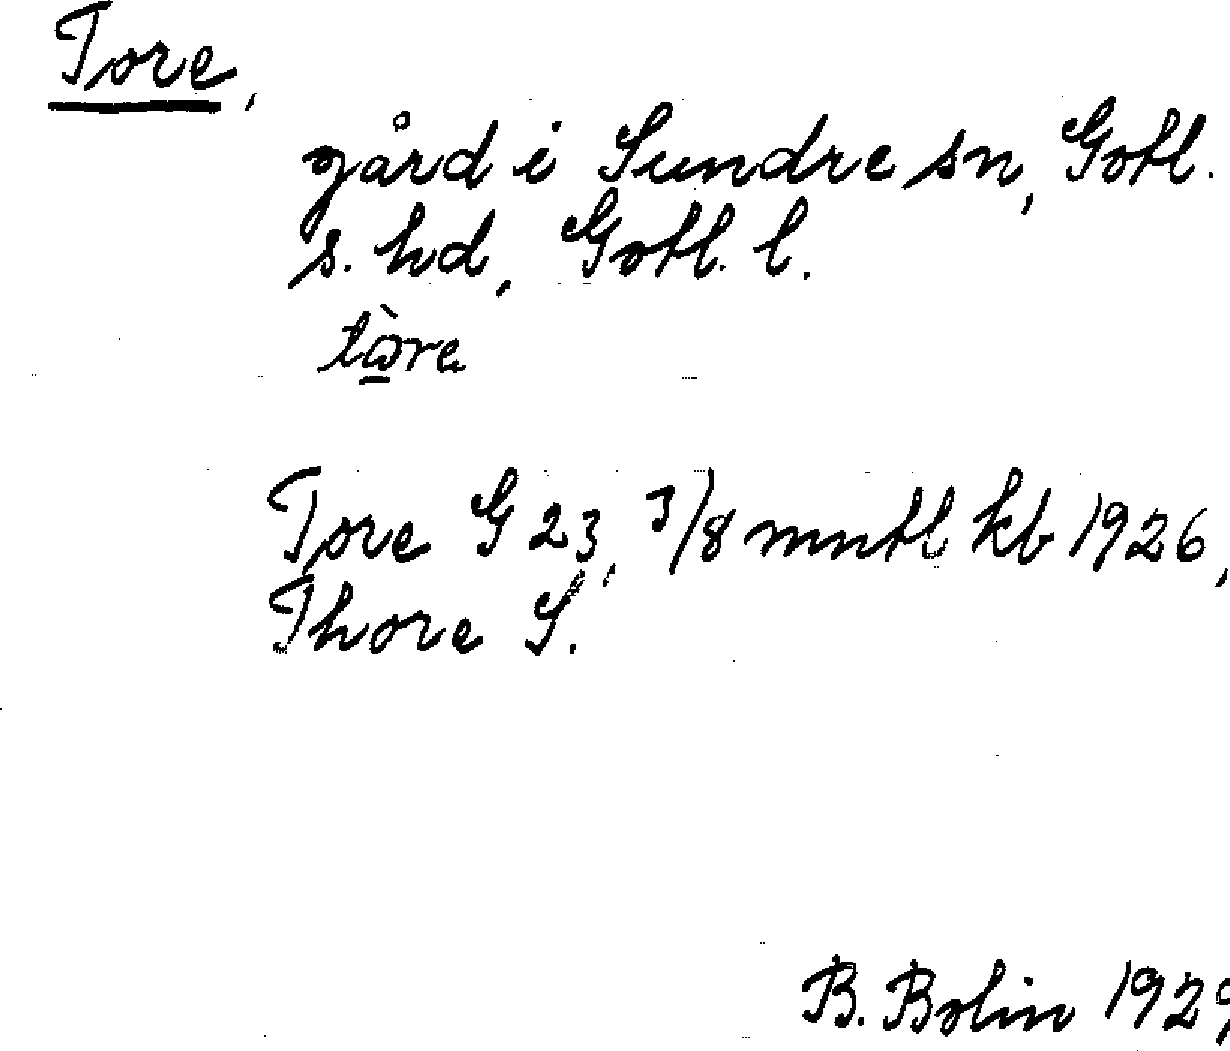 Tore,
gård i Sundre sn, Gotl.
s. hd, Gotl. l.
tò̱re
Tore G 23, 3/8 mntl kb 1926,
Thore S.
B. Bolin 1929